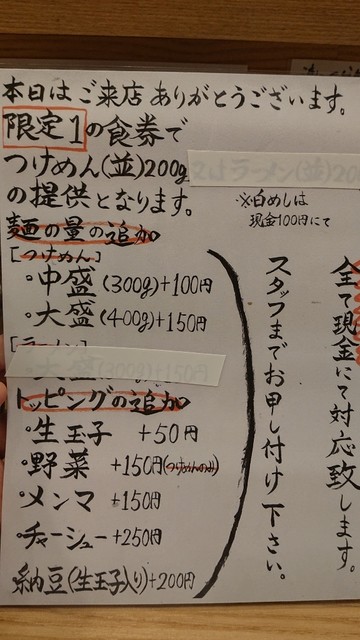 本日はご来店ありがとうございます。
限定1の食券で
つけめん(並)200g
の提供となります。
※白めしは
現金100円にて
麺の量の追加
[つけめん]
・中盛(300g)+100円
・大盛(400g)+150円
[ラーメン]
・大盛(300g)+150円
トッピングの追加
・生玉子 +50円
・野菜 +150円(つけめんのみ)
・メンマ +150円
・チャーシュー+250円
納豆(生玉子入り)+200円
全て現金にて対応致します。
スタッフまでお申し付け下さい。